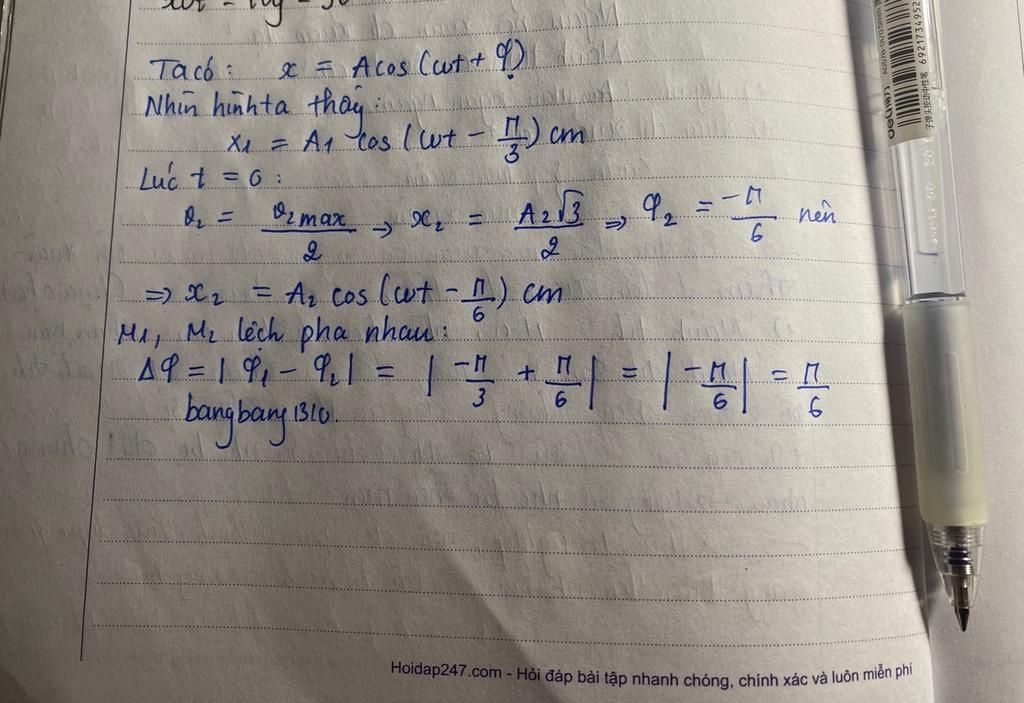 Ta có: x = Acos(ωt + φ)
Nhìn hình ta thấy:
x₁ = A₁ cos (ωt - π/3) cm
Lúc t = 0 :
v₂ = v₂max/2 → x₂ = A₂√3/2 ⇒ φ₂ = -π/6 nên
⇒ x₂ = A₂ cos(ωt - π/6) cm
M₁, M₂ lệch pha nhau:
Δφ = |φ₁ - φ₂| = |-π/3 + π/6| = |-π/6| = π/6
bangbang1310.
Hoidap247.com - Hỏi đáp bài tập nhanh chóng, chính xác và luôn miễn phí